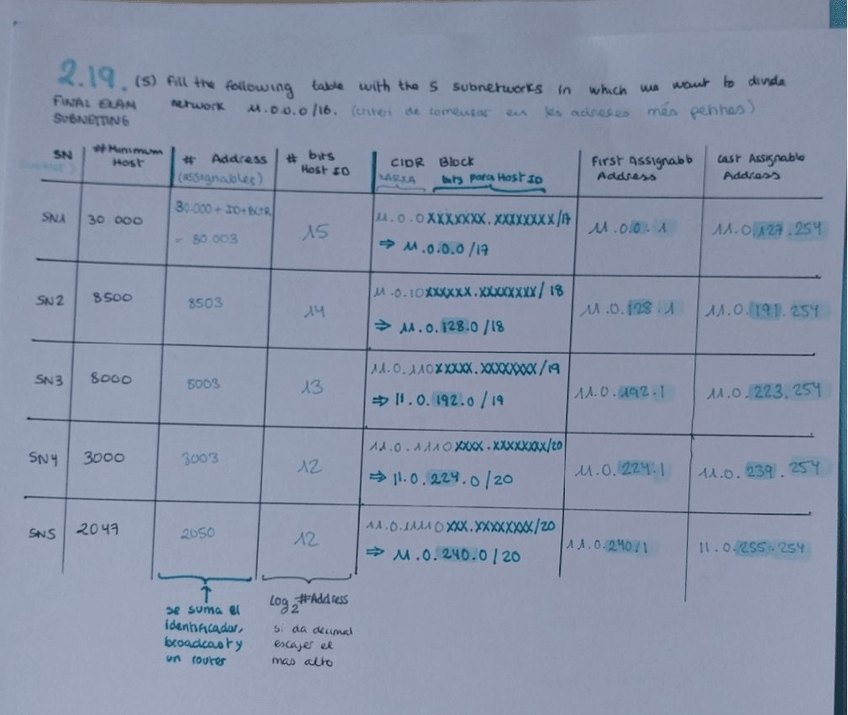 2.19. (S) Fill the following table with the 5 subnetworks in which we want to divide
FINAL EXAM network 11.0.0.0/16. (criteri de comensar en les adreses más petites)
SUBNETTING
SN #Minimum Host # Address (assignables) # bits Host ID CIDR Block First Assignabb Address Last Assignable Address
XARXA bits para Host ID
SN1 30 000 30.000 + ID+BC+R = 30.003 15 11.0.0XXXXXXX.XXXXXXXX/17 11.0.0.1 11.0.127.254
⇒ 11.0.0.0/17
SN2 8500 8503 14 11.0.10XXXXXX.XXXXXXXX/18 11.0.128.1 11.0.191.254
⇒ 11.0.128.0/18
SN3 8000 8003 13 11.0.110XXXXX.XXXXXXXX/19 11.0.192.1 11.0.223.254
⇒ 11.0.192.0/19
SN4 3000 3003 12 11.0.1110XXXX.XXXXXXXX/20 11.0.224.1 11.0.239.254
⇒ 11.0.224.0/20
SN5 2047 2050 12 11.0.11110XXX.XXXXXXXX/20 11.0.240.1 11.0.255.254
⇒ 11.0.240.0/20
se suma el
identificador,
broadcast y
un router
log2 #Address
si da decimal
escojer el
mas alto